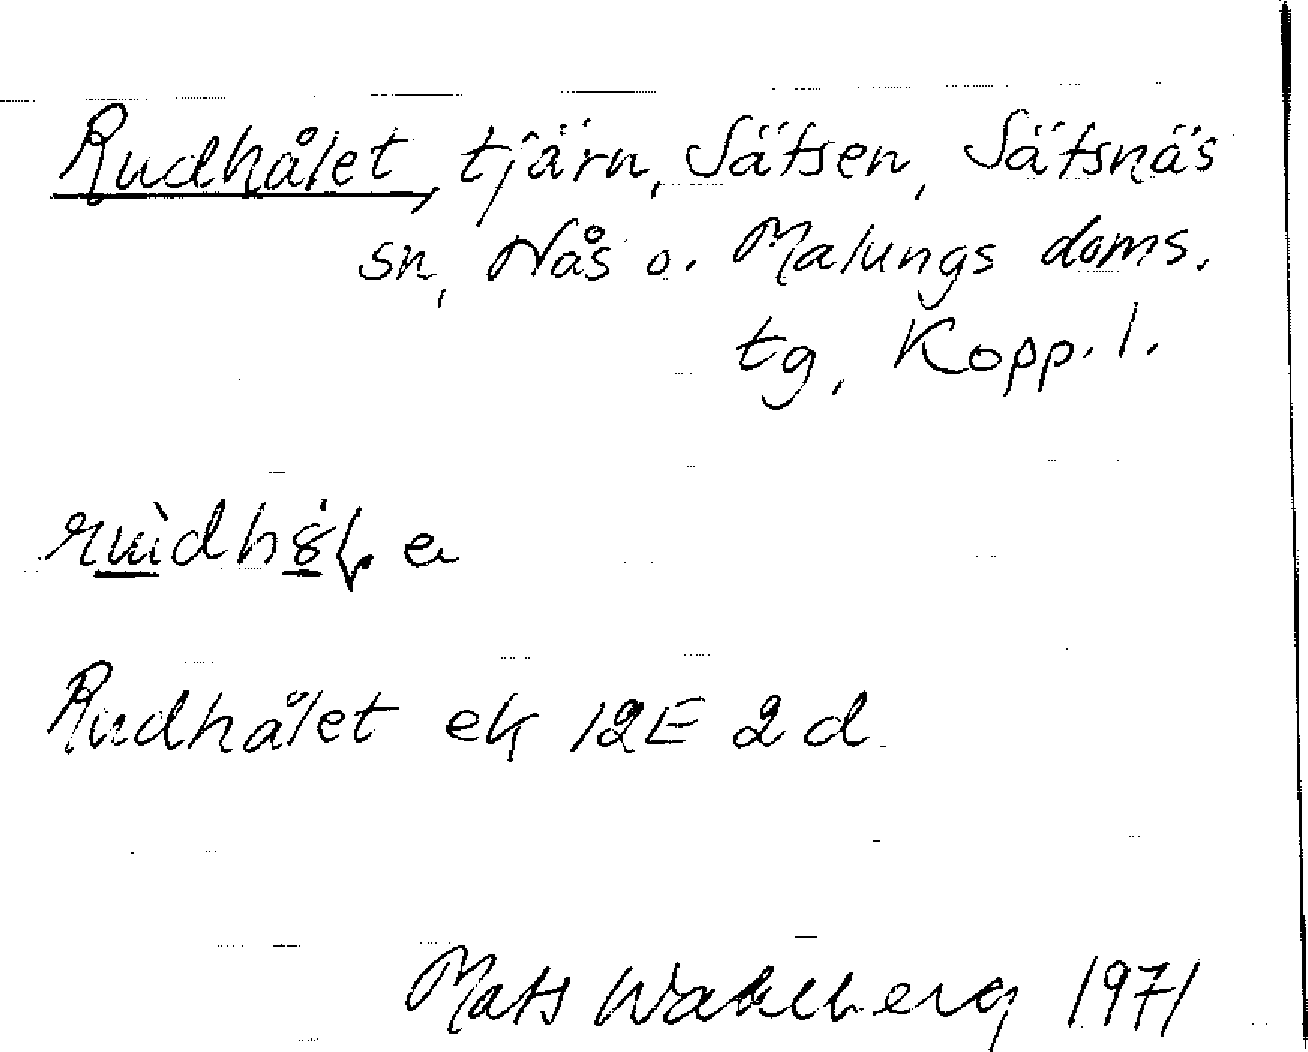 Rudhålet, tjärn, Sätsen, Sätsnäs
sn, Nås o. Malungs doms.
tg, Kopp. l.
Rudhålet ek 12E 2d
Mats Wahlberg 1971